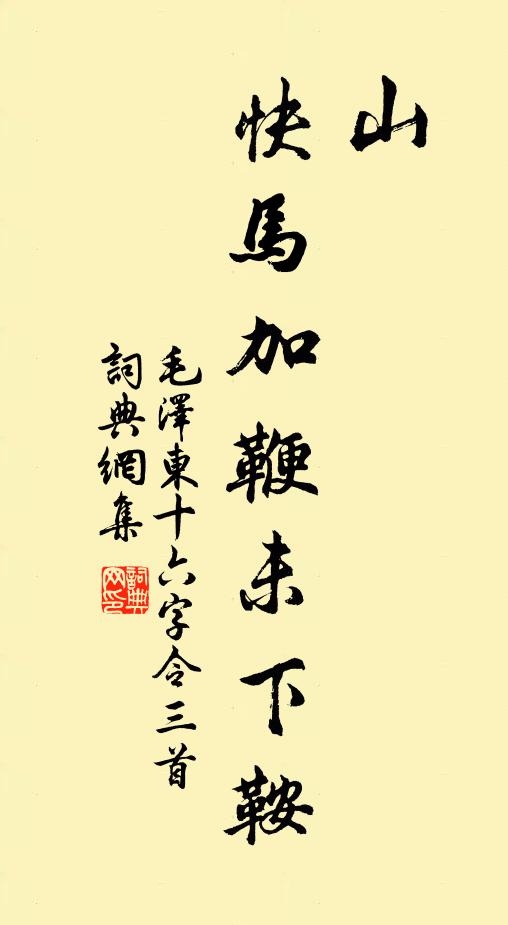 山
快馬加鞭未下鞍
毛澤東十六字令三首
詞典網集
詞典網印